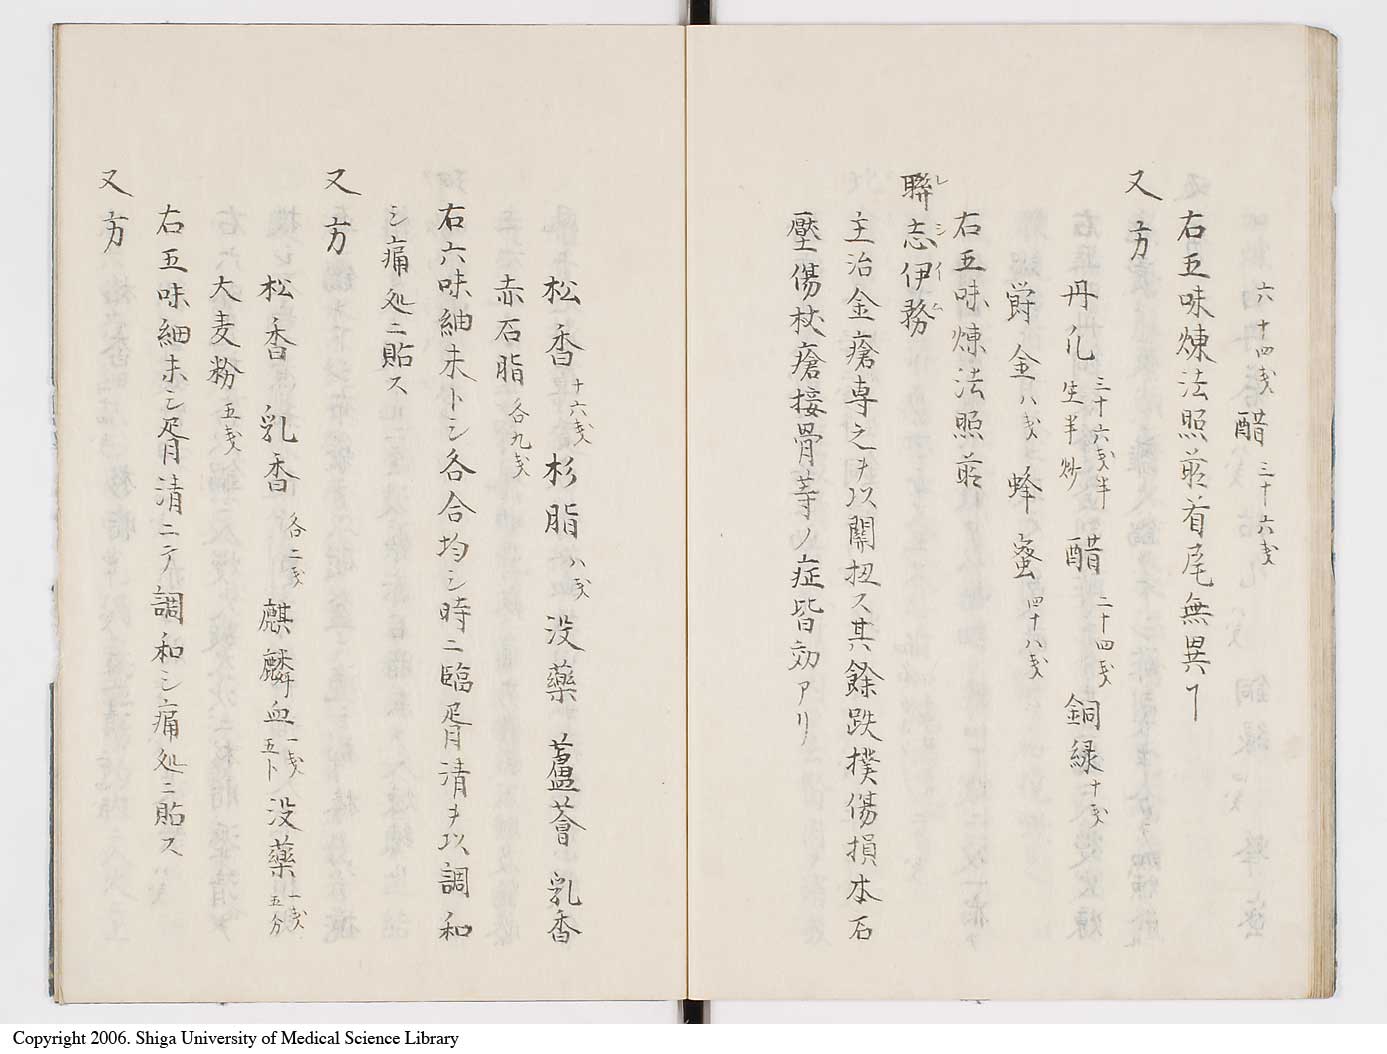 六十四戔 醋 三十六戔
右五味煉法照前首尾無異ヿ
又方
丹礼 三十六戔半 生半炒 醋 二十四戔 銅緑 十戔
欝金 八戔 蜂蜜 四十八戔
右五味煉法照前
聯志伊務 レシイム
主治金瘡専之ヲ以關扭ス其餘跌撲傷損本石
壓傷杖瘡接骨等ノ症皆効アリ
松香 十六戔 杉脂 八戔 没藥 蘆薈 乳香
赤石脂 各九戔
右六味細末トシ各合均シ時ニ臨胥清ヲ以調和
シ痛処ニ貼ス
又方
松香 乳香 各二戔 麒麟血 一戔五卜 没藥 一戔五分
大麦粉 五戔
右五味細末シ胥清ニテ調和シ痛処ニ貼ス
又方
Copyright 2006. Shiga University of Medical Science Library